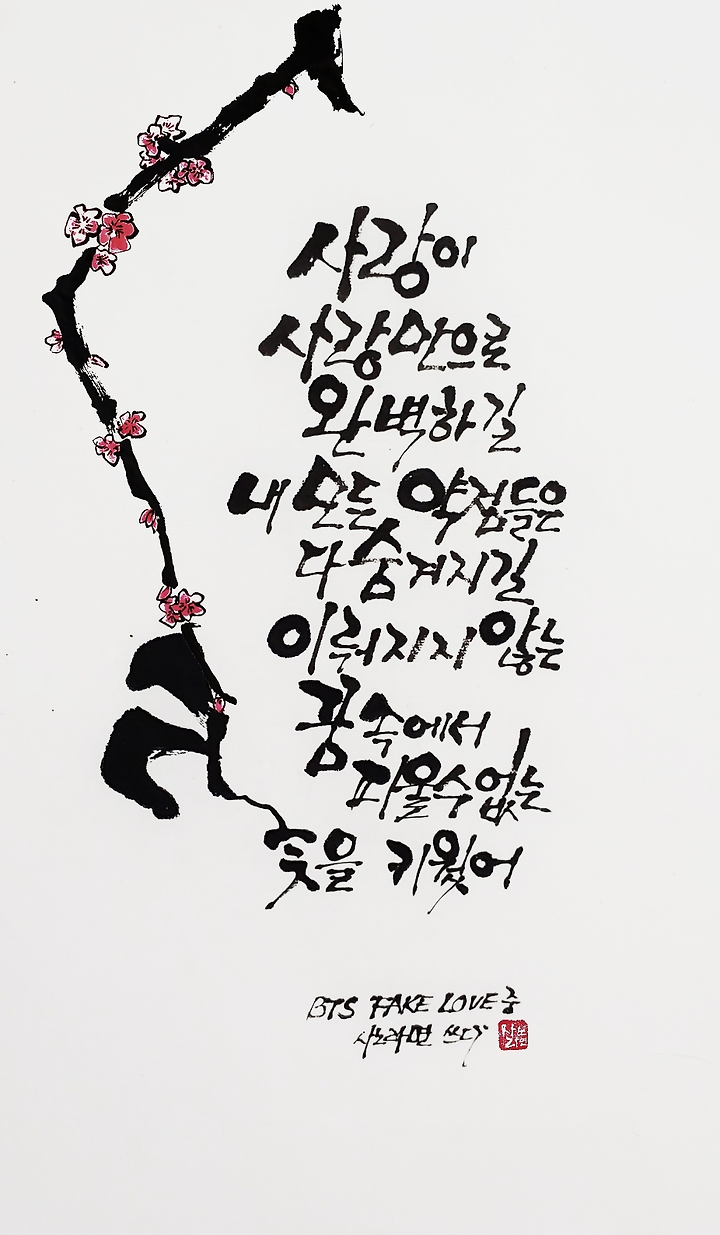 사랑이
사랑만으로
완벽하길
내 모든 약점들은
다 숨겨지길
이뤄지지 않는
꿈속에서
피울수없는
꽃을 키웠어
BTS FAKE LOVE 중
사노라면 쓰다